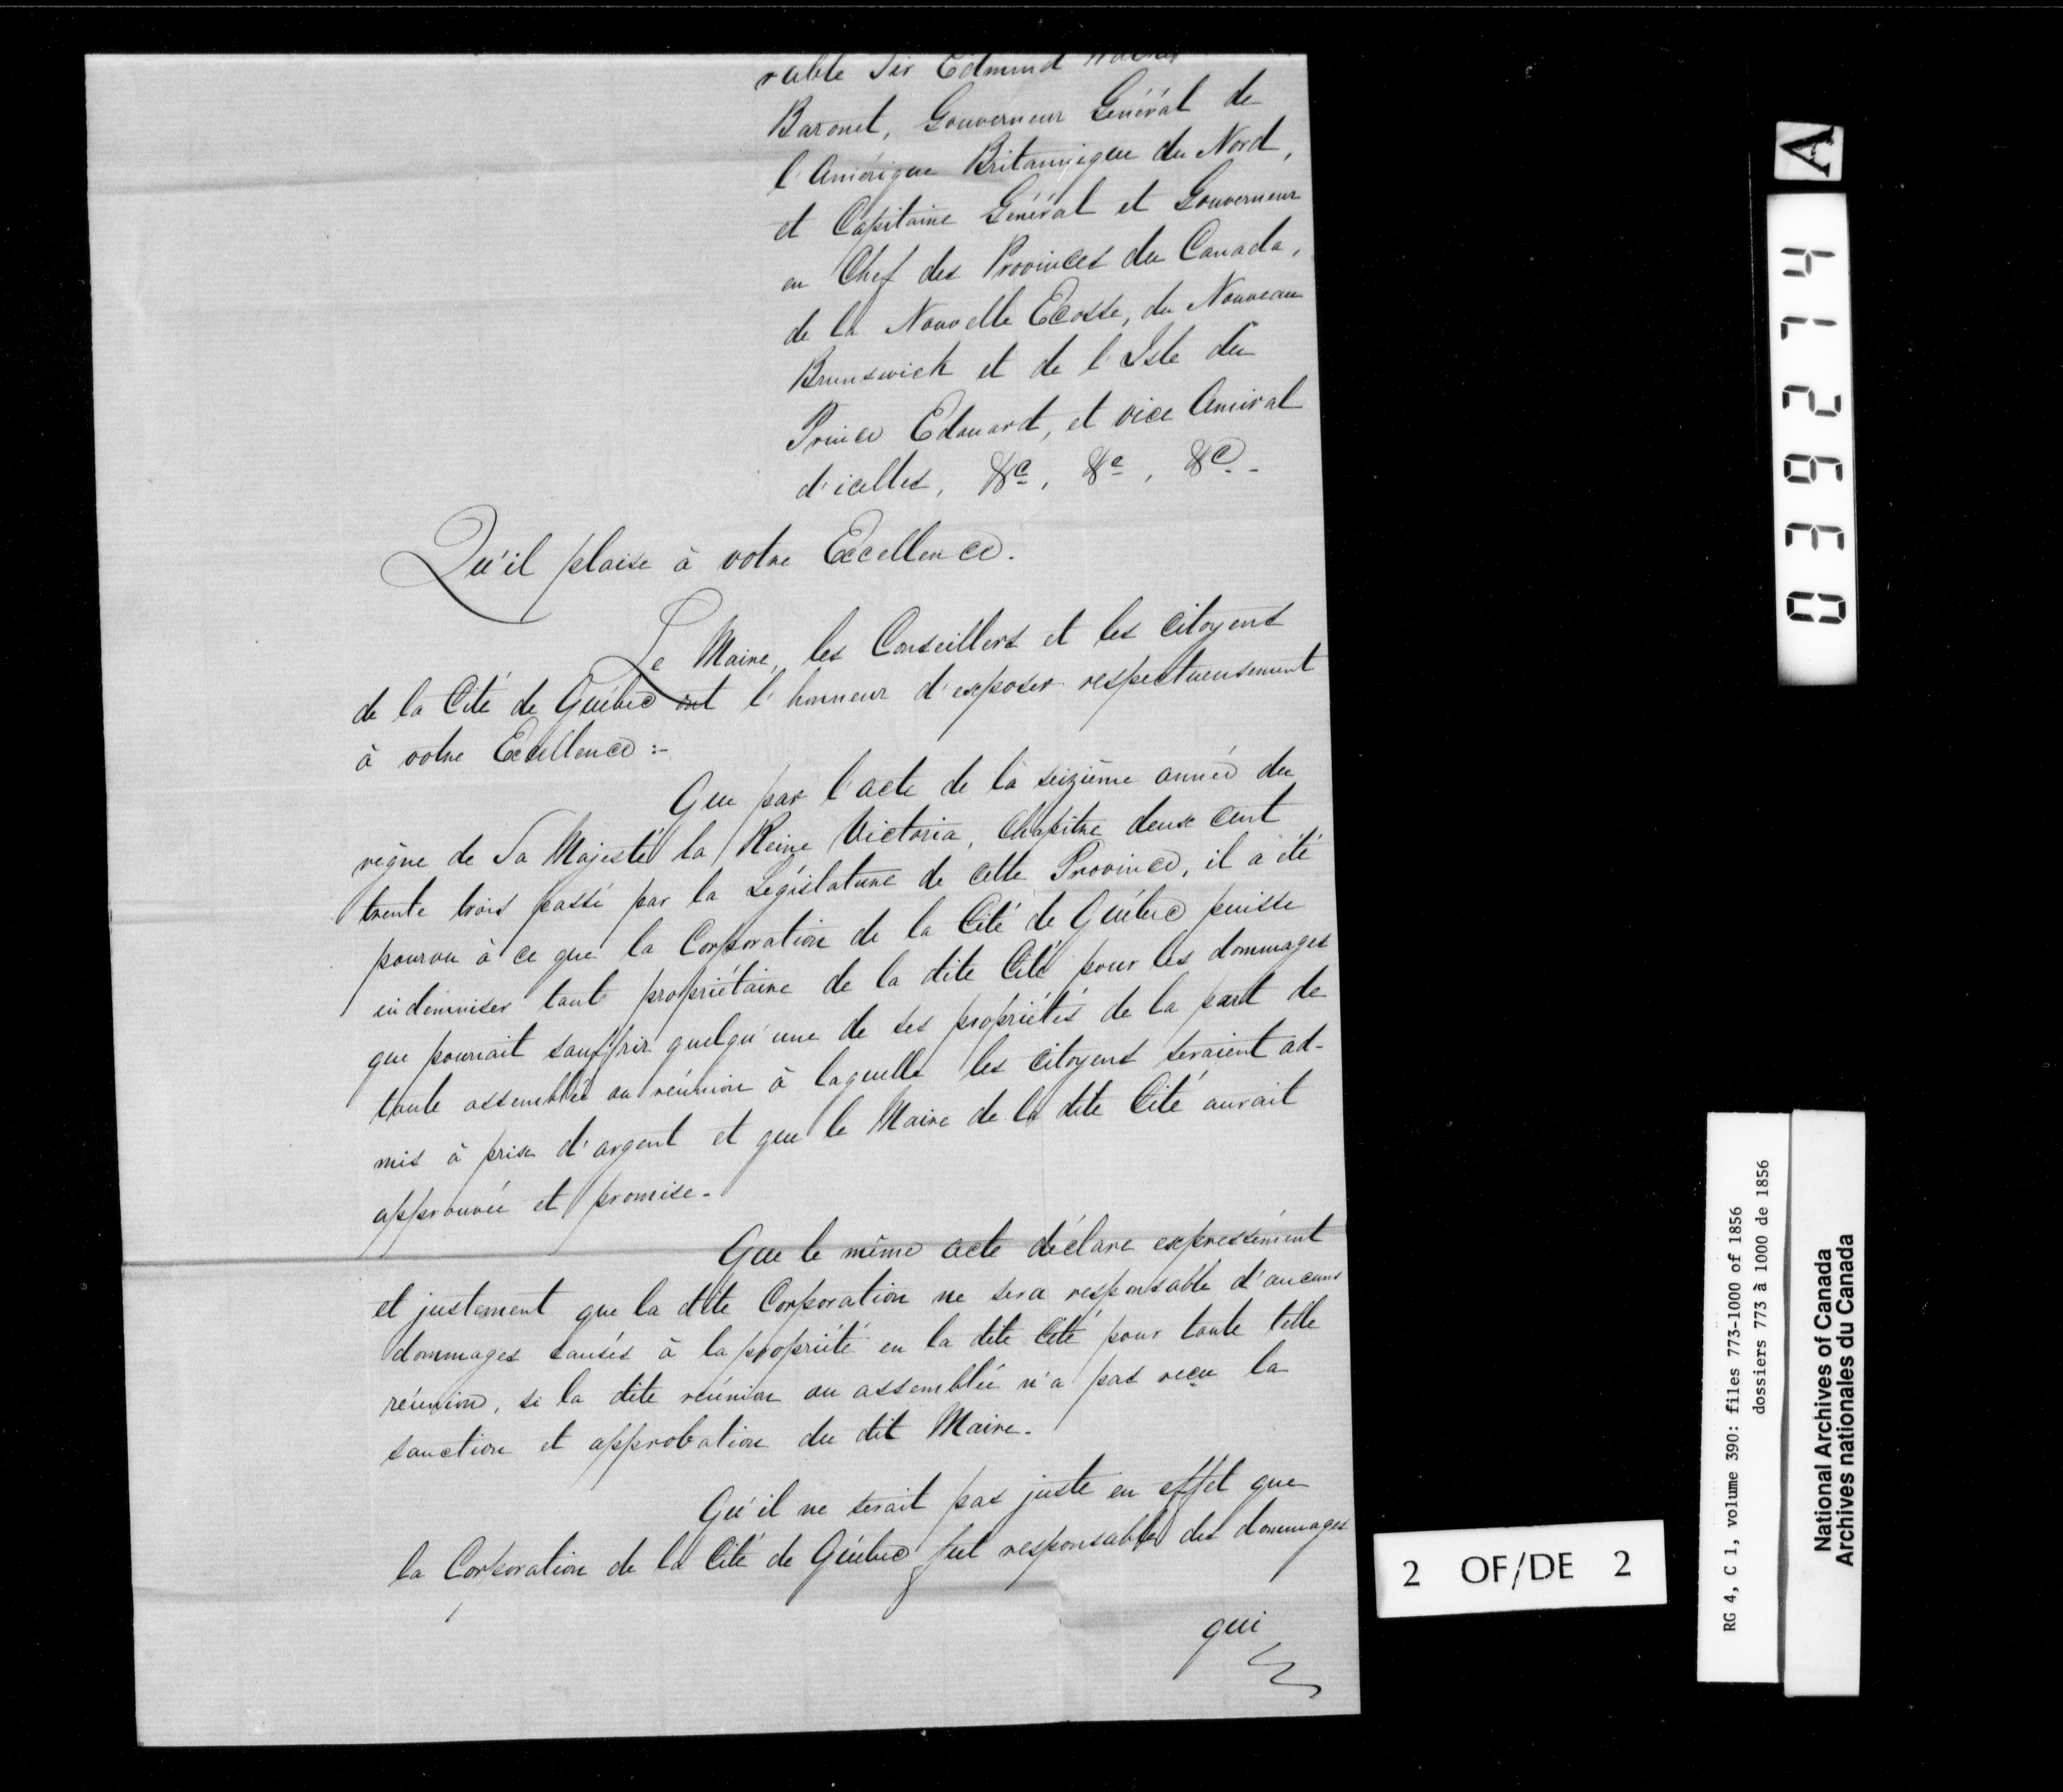 rable Sir Edmund
Baronet, Gouverneur Général de
l'Amérique Britannique du Nord,
et Capitaine Général et Gouverneur
en Chef des Provinces du Canada,
de la Nouvelle Ecosse, du Nouveau
Brunswick et de l'Isle du
Prince Edouard, et vice Amiral
d'icelles, &c, &c, &c.
Qu'il plaise à votre Excellence.
Le Maire, les Conseillers et les citoyens
de la Cité de Québec ont l'honneur d'exposer respectueusement
à votre Excellence :-
Que par l'acte de la seizième année du
règne de Sa Majesté la Reine Victoria, Chapitre deux cent
trente trois passé par la Législature de cette Province, il a été
pourvu à ce que la Corporation de la Cité de Québec puisse
indemniser tout propriétaire de la dite Cité pour les dommages
que pourrait souffrir quelqu'une de ses propriétés de la part de
toute assemblée ou réunion à laquelle les citoyens seraient ad-
mis à prix d'argent et que le Maire de la dite Cité aurait
approuvée et promise.
Que le même acte déclare expressément
et justement que la dite Corporation ne sera responsable d'aucuns
dommages causés à la propriété en la dite Cité pour toute telle
réunion, si la dite réunion ou assemblée n'a pas reçu la
sanction et approbation du dit Maire.
Qu'il ne serait pas juste en effet que
la Corporation de la Cité de Québec fut responsable des dommages
qui
039274 A
2 OF/DE 2
RG 4, C 1, volume 390: files 773-1000 of 1856
dossiers 773 à 1000 de 1856
National Archives of Canada
Archives nationales du Canada